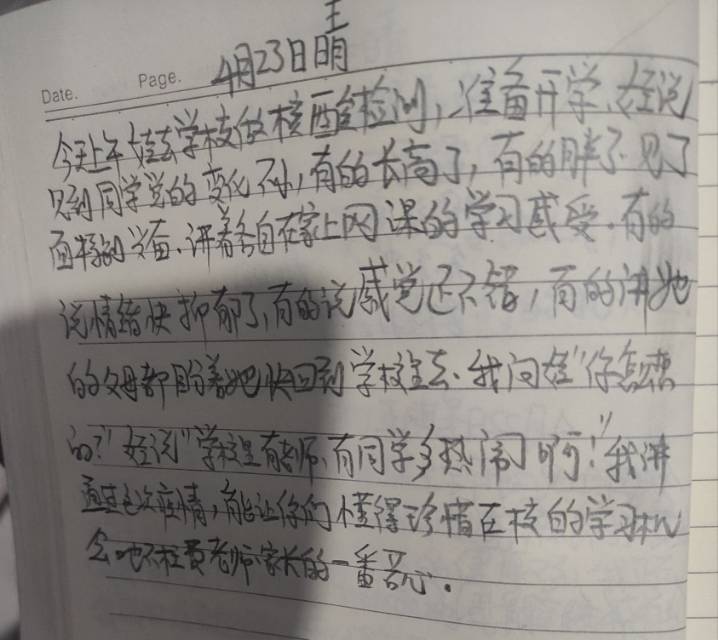 Date. Page. 4月23日 王萌
今天上午娃去学校做核酸检测,准备开学、娃说
见到同学觉的变化不小,有的长高了,有的胖了.见了
面特别兴奋、讲着各自在家上网课的学习感受.有的
说情绪快抑郁了,有的说感觉还不错,有的讲她
的父母都盼着她快回到学校里去.我问娃"你怎想
的?"娃说"学校里有老师、有同学多热闹啊!"我讲
通过这次疫情,能让你们懂得珍惜在校的学习机
会.也不枉费老师家长的一番苦心.